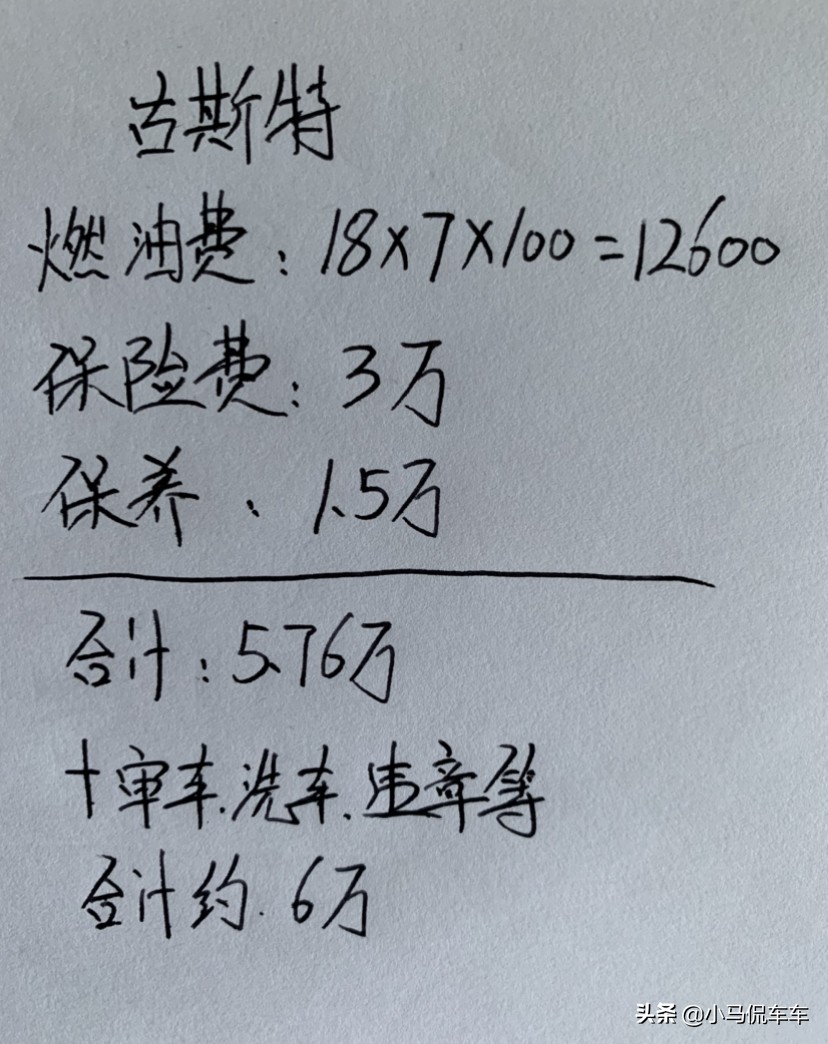 古斯特
燃油费：18×7×100=12600
保险费：3万
保养、1.5万
合计：5.76万
+审车.洗车.违章等
合计约.6万
头条 @小马侃车车